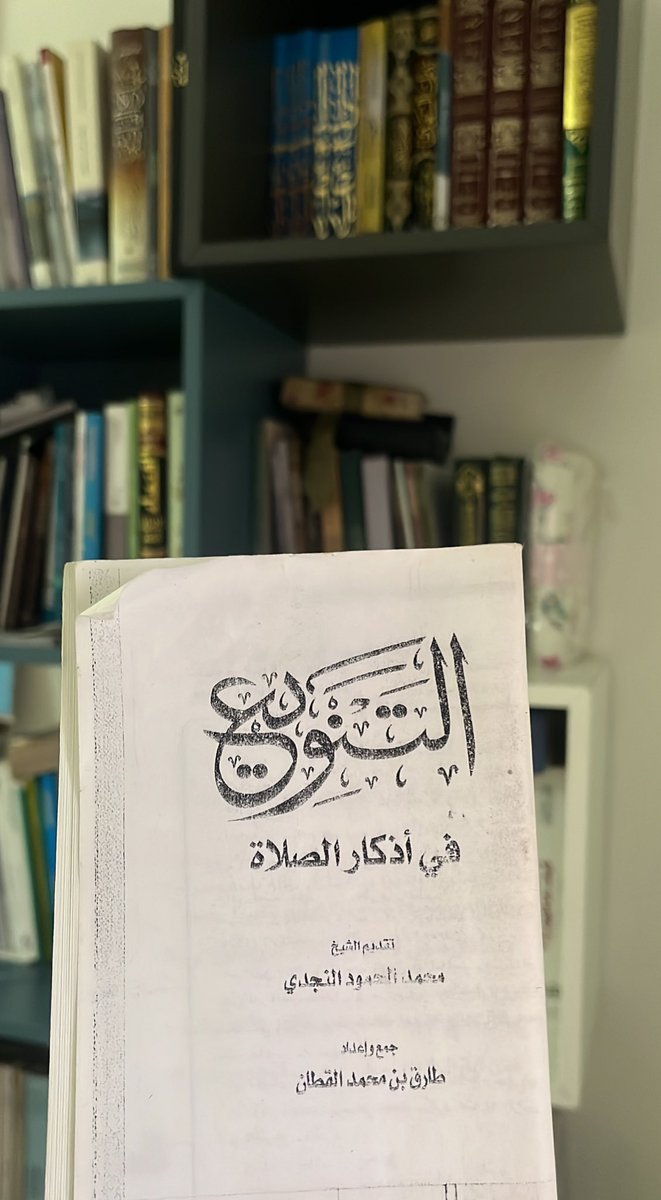 التنويع
في أذكار الصلاة
تقديم الشيخ
محمد الحمود النجدي
جمع وإعداد
طارق بن محمد القطان